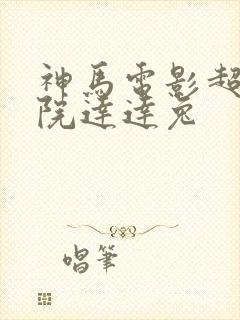 神馬電影超
院達達兔
唱筆